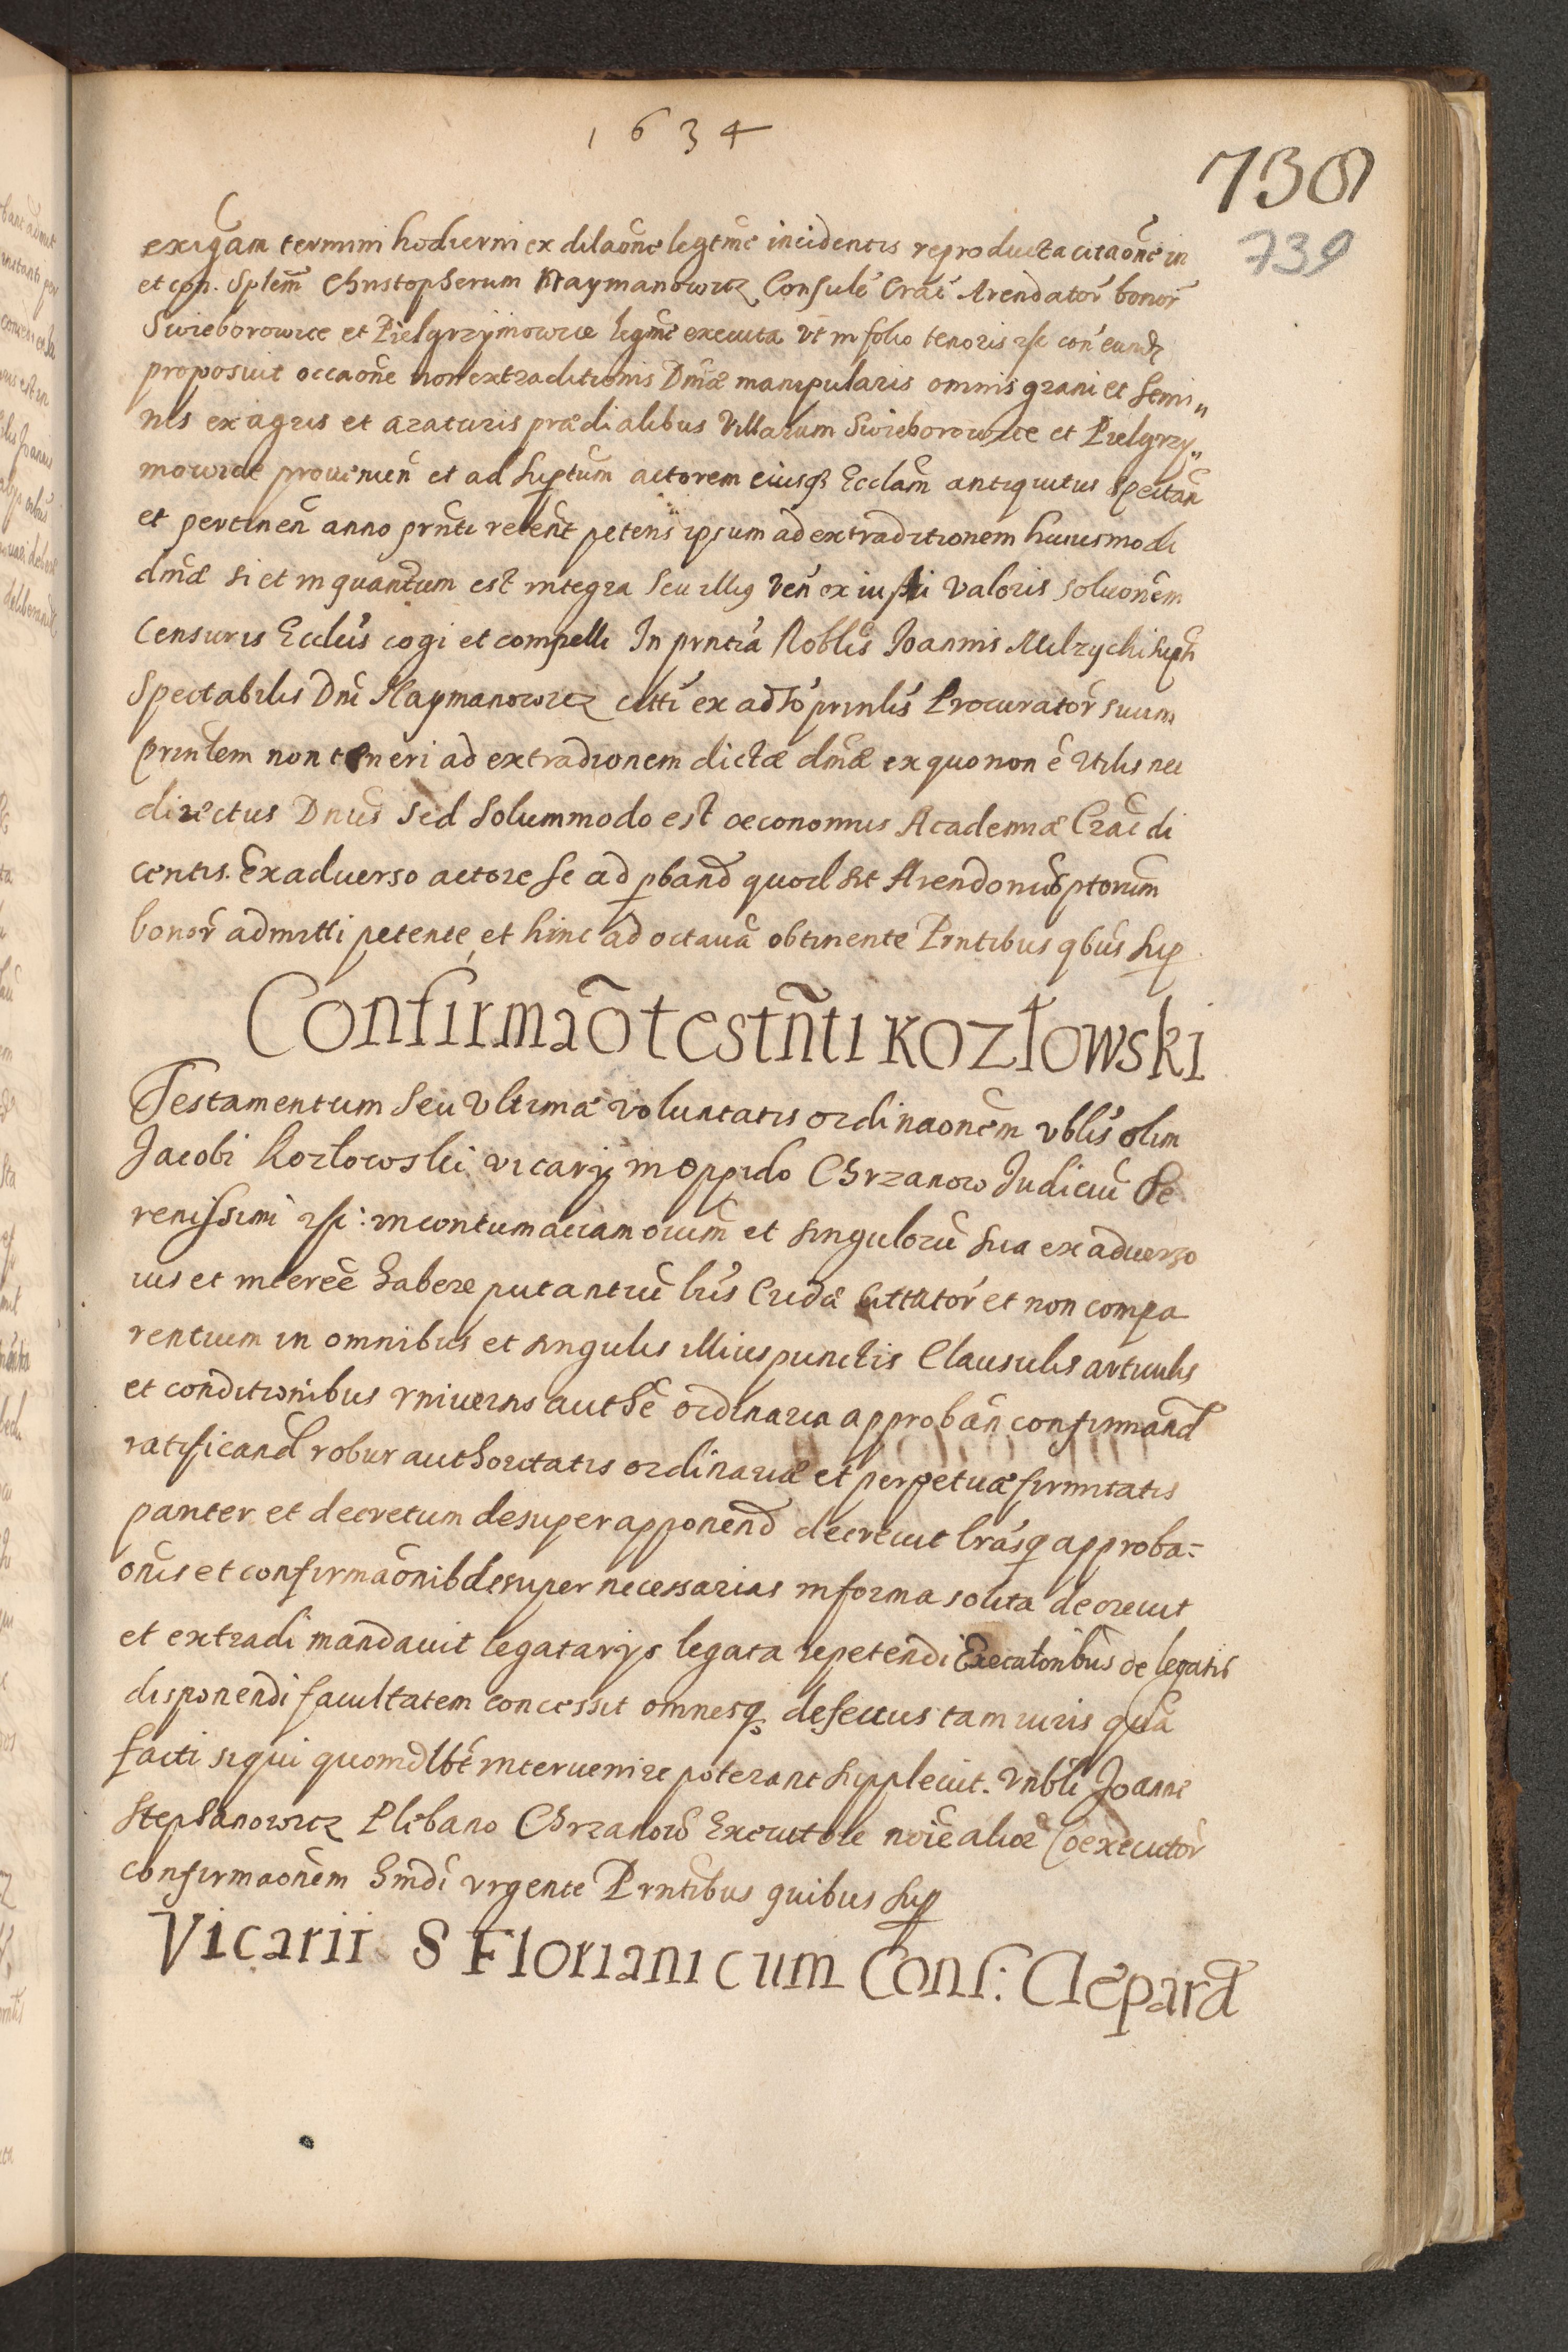 1634
738
739
exigam termini hodierni ex dilaone legtme incidentis reproducta citaone in
et con. Splem Christopherum Naymanowicz Consule Crac Arendator bonor
Swieborowice et Pielgrzymowice legme executa vt in folio tenoris con eund
proposuit occaone non extraditionis Dmæ manipularis omnis grani et Semi„
nis ex agris et araturis prædialibus Villarum Swieborowice et Pielgrzy„
mowice prouenien et ad Suptum actorem eiusq Ecclam antiquitus Spectan
et pertinen anno prnti retent petens ipsum ad extraditionem huiusmodi
dmæ si et in quantum est integra Seu illius ven ex iusti valoris soluonem
Censuris Ecclis cogi et compelli In prntia Noblis Joannis Milzychi
Spectabilis Dni Naymanowicz citti ex adso prinlis Procurator suum
prinlem non teneri ad extradionem dictæ dmæ ex quo non e Vtilis nec
directus Dnus Sed Solummodo est œconomus Academiæ Crac di
centis. Ex aduerso actore Se ad pband quod sit ptorum
bonor admitti petente et hinc ad octaua obtinente Prntibus qbus Sup
Confirmao testnti Kozłowski
Testamentum Seu Vltimæ voluntatis ordinaonem vblis olim
Jacobi Kozłowski vicarij in Oppido Chrzanow Judiciu Se
renissimi in contumaciam oium et singuloru sua ex aduerso
ius et interee habere putantiu lris Cridæ cittator et non compa
rentium in omnibus et singulis illius punctis Clausulis articulis
et conditionibus vniuersis authe ordinaria approban confirmand
ratificand robur authoritatis ordinariæ et perpetuæ firmitatis
pariter et decretum desuper apponend decreuit lrasq approba=
onis et confirmaonib desuper necessarias in forma solita decreuit
et extradi mandauit legatarijs legata repetendi Executoribus de legatis
disponendi facultatem concessit omnesq defectus tam iuris qua
facti siqui quomdlbt interuenire poterant suppleuit. Vnbli Joanne
Stephanowicz Plebano Chrzanow Executore noie alior Coexecutor
confirmaonem hmdi vrgente Prntibus quibus Sup
Vicarii S Floriani cum Cons: Clepard